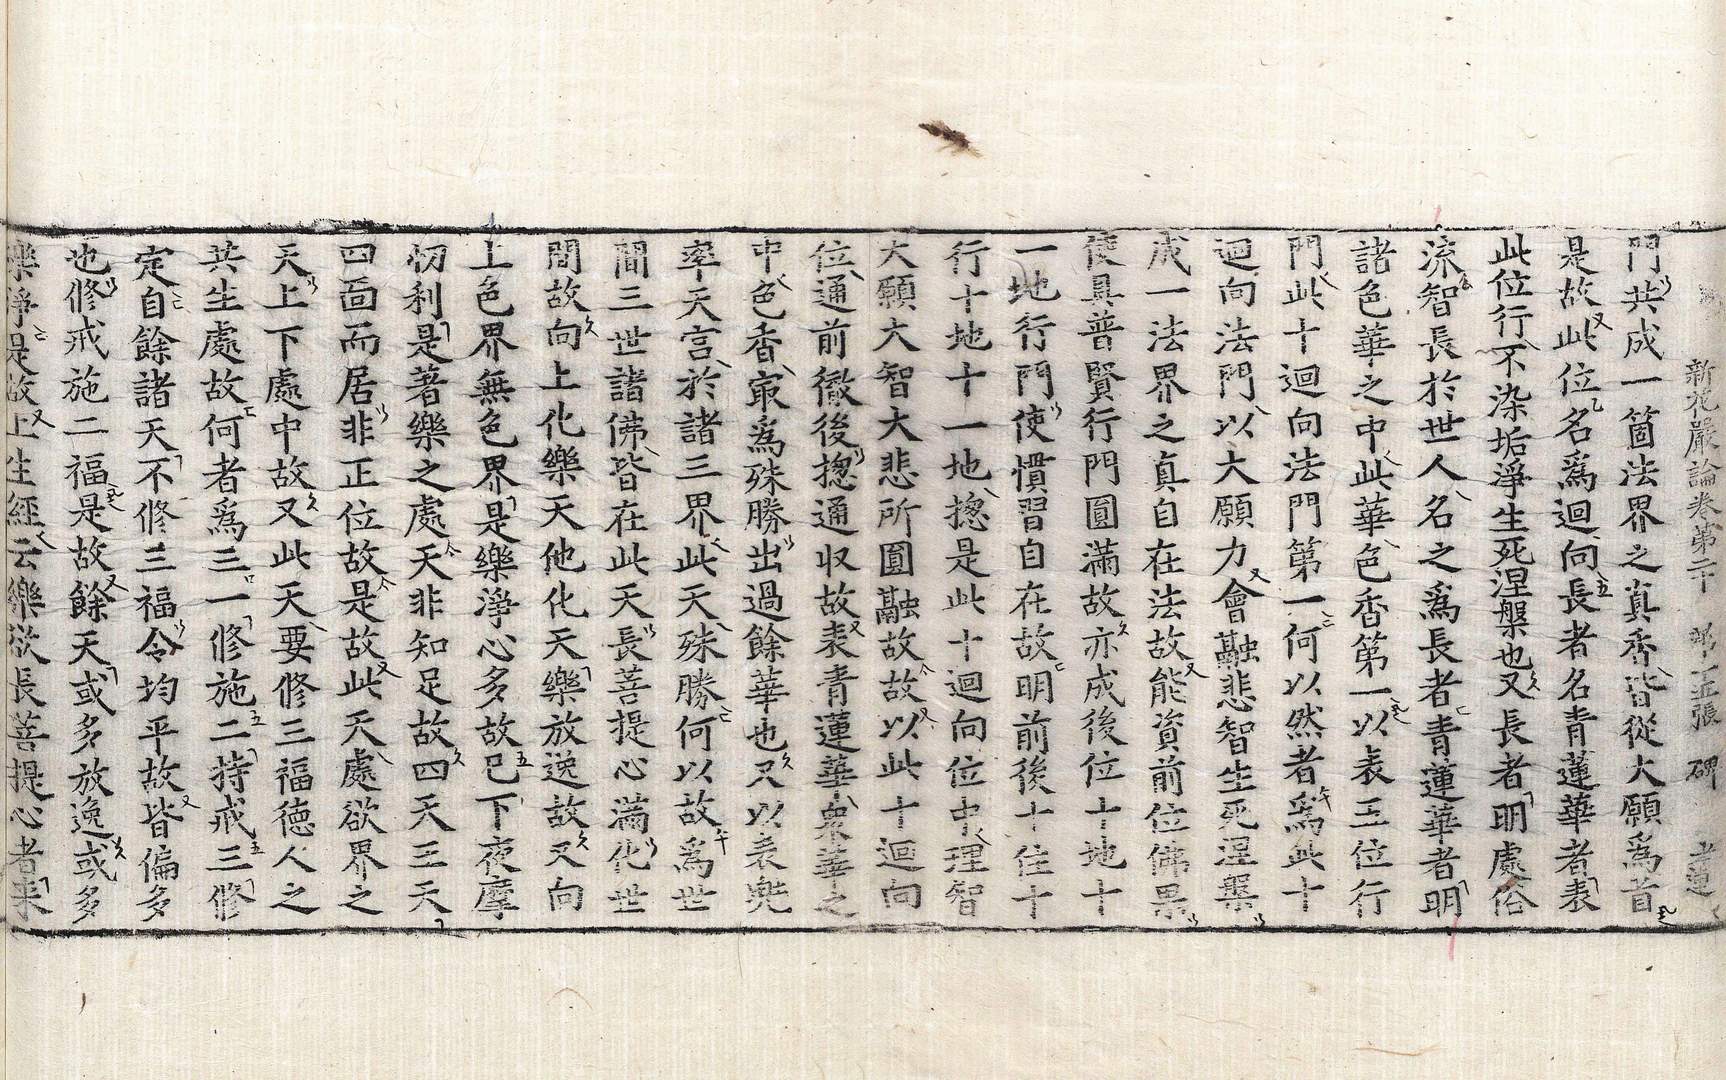 新花嚴論卷第二十 第十五張 碑
門共成一箇法界之真香皆從大願爲首
是故此位名爲迴向長者名青蓮華者表
此位行不染垢淨生死涅槃也又長者明處俗
流智長於世人名之爲長者青蓮華者明
諸色華之中此華色香第一以表五位行
門此十迴向法門第一何以然者爲此十
迴向法門以大願力會融悲智生死涅槃
成一法界之真自在法故能資前位佛果
使具普賢行門圓滿故亦成後位十地十
一地行門使慣習自在故明前後十住十
行十地十一地揔是此十迴向位中理智
大願大智大悲所圓融故故以此十迴向
位通前徹後揔通收故表青蓮華衆華之
中色香㝡爲殊勝出過餘華也又以表兠
率天宫於諸三界此天殊勝何以故爲世
間三世諸佛皆在此天長菩提心滿化世
間故向上化樂天他化天樂放逸故又向
上色界無色界是樂淨心多故已下夜摩
忉利是著樂之處天非知足故四天王天
四面而居非正位故是故此天處欲界之
天上下處中故又此天要修三福德人之
共生處故何者爲三一修施二持戒三修
定自餘諸天不修三福令均平故皆偏多
也修戒施二福是故餘天或多放逸或多
樂淨是故上生經云樂欲長菩提心者来